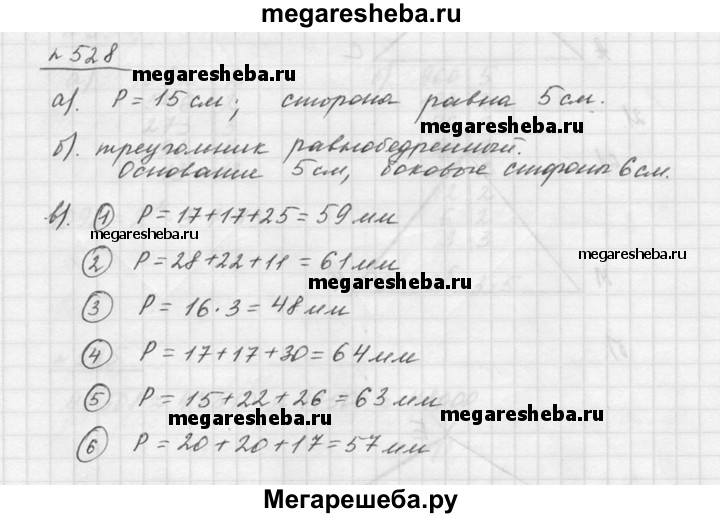 megaresheba.ru
№ 528
megaresheba.ru
а). P = 15 см; сторона равна 5 см.
megaresheba.ru
б). треугольник равнобедренный.
Основание 5 см, боковые стороны 6 см.
megaresheba.ru
в). ① P = 17+17+25 = 59 мм
megaresheba.ru
megaresheba.ru
② P = 28+22+11 = 61 мм
megaresheba.ru
③ P = 16·3 = 48 мм
④ P = 17+17+30 = 64 мм
⑤ P = 15+22+26 = 63 мм
megaresheba.ru
megaresheba.ru
⑥ P = 20+20+17 = 57 мм
megaresheba.ru
Мегарешеба.ру